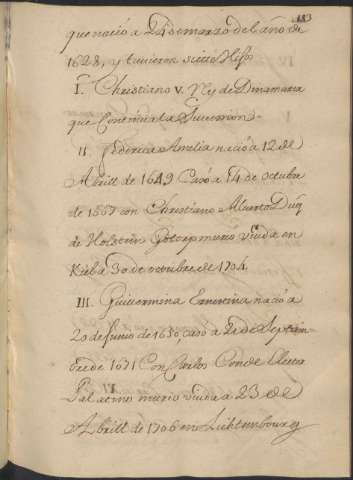 183
que nació a 24 de marzo del año de
1628, y tuvieron siette Hijos
I. Christiano V. Rey de Dinamarca
que Continúa la Succession.
II. Federica Amelia nació a 12 de
Abrill de 1649 Casó a 14 de octubre
de 1667 con Christiano Alberto Duq.
de Holstein Gotorp murió viuda en
Kiel a 30 de octubre de 1704.
III. Guillermina Ernestina nació a
20 de Junio de 1650, casó a 20 de Septiem-
bre de 1671 Con Carlos Conde Elector
Palatino murió viuda a 23 de
Abrill de 1706 en Lichtenbourg